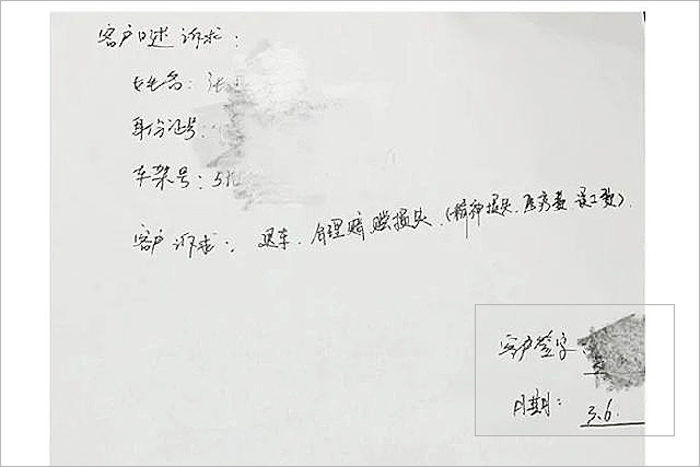 客户口述诉求：
姓名：张
身份证号：
车架号：
客户诉求：退车、合理赔赔损失（精神损失、医药费 误工费）.
客户签字：
日期：3.6.